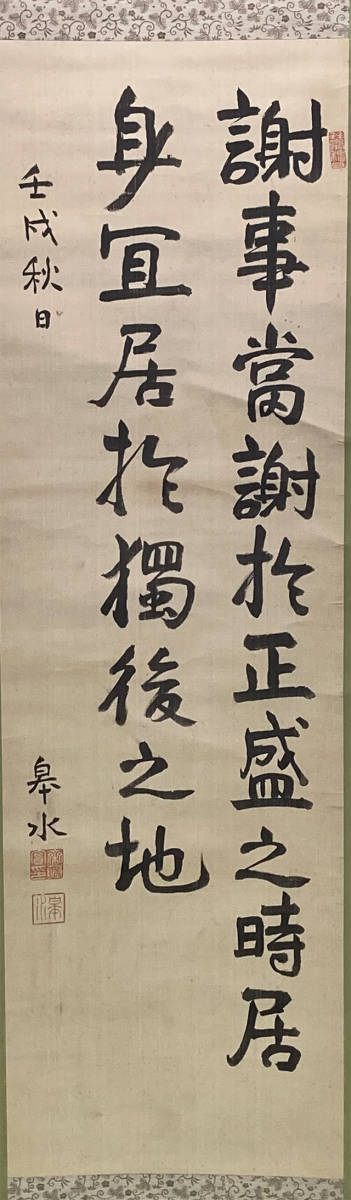 謝事當謝於正盛之時居
身宜居於獨後之地
壬戌秋日
皐水